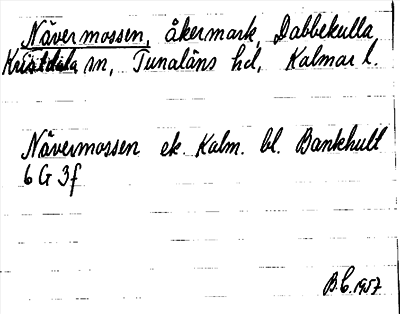 Nävermossen, åkermark, Dabbekulla
Kristdala sn, Tunaläns hd, Kalmar l.
Nävermossen ek. Kalm. bl. Bankhult
6 G 3f
B.C. 1957